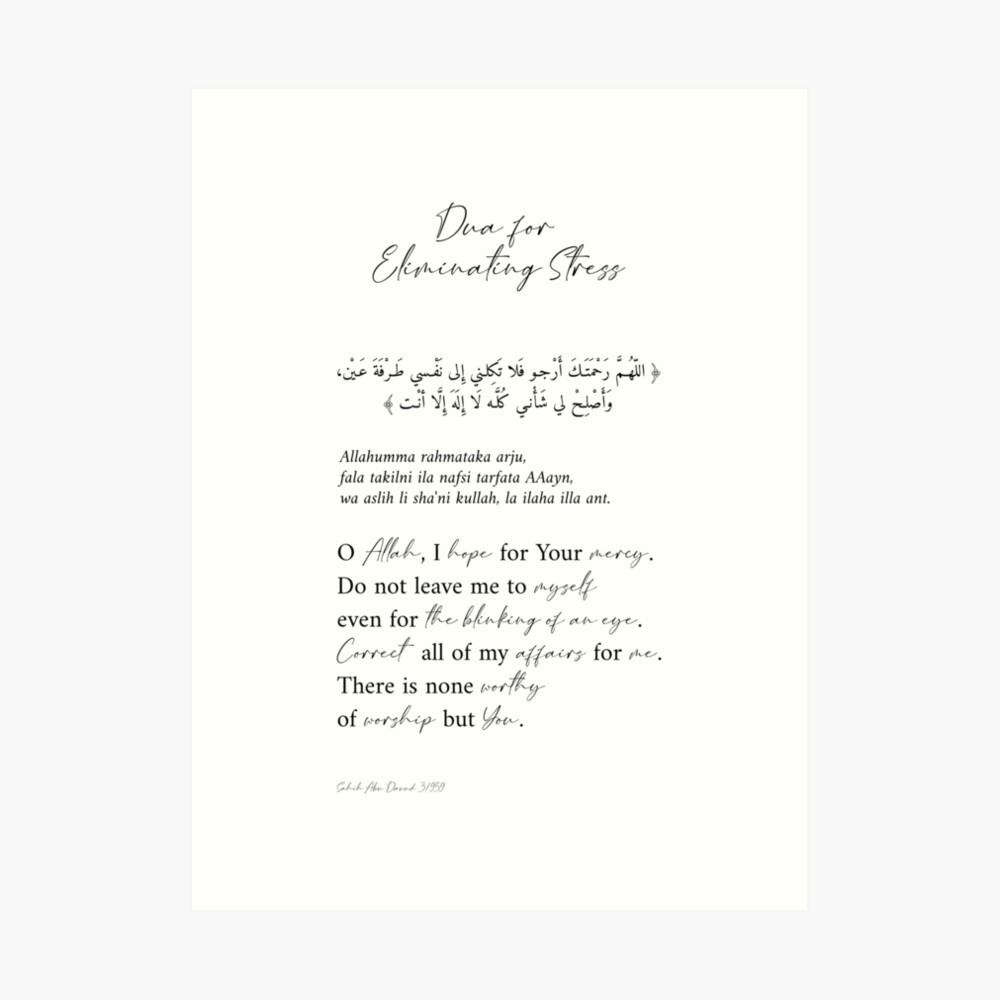 Dua for
Eliminating Stress
﴿ اللّهُـمَّ رَحْمَتَـكَ أَرْجـو فَلا تَكِلـني إِلى نَفْـسي طَـرْفَةَ عَـيْن،
وَأَصْلِـحْ لي شَأْنـي كُلَّـه لَا إِلَهَ إِلَّا أنْـت ﴾
Allahumma rahmataka arju,
fala takilni ila nafsi tarfata AAayn,
wa aslih li sha'ni kullah, la ilaha illa ant.
O Allah, I hope for Your mercy.
Do not leave me to myself
even for the blinking of an eye.
Correct all of my affairs for me.
There is none worthy
of worship but You.
Sahih Abu Dawud 3/959